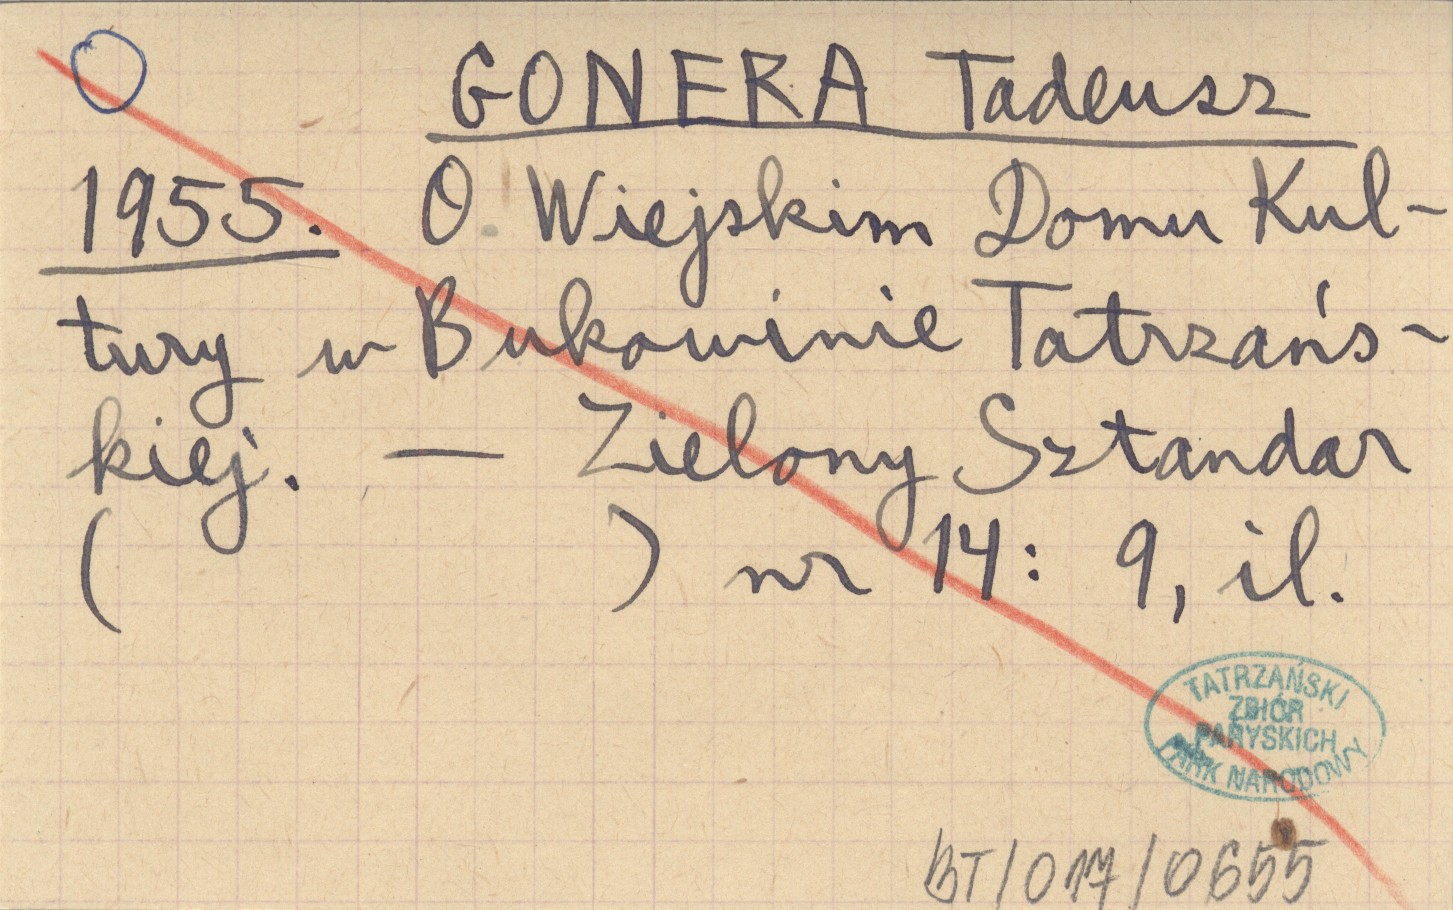 GONERA Tadeusz
1955. O Wiejskim Domu Kul-
tury w Bukowinie Tatrzańs-
kiej. — Zielony Sztandar
( ) nr 14: 9, il.
TATRZAŃSKI
ZBIÓR
PARYSKICH
PARK NARODOWY
BT/017/0655